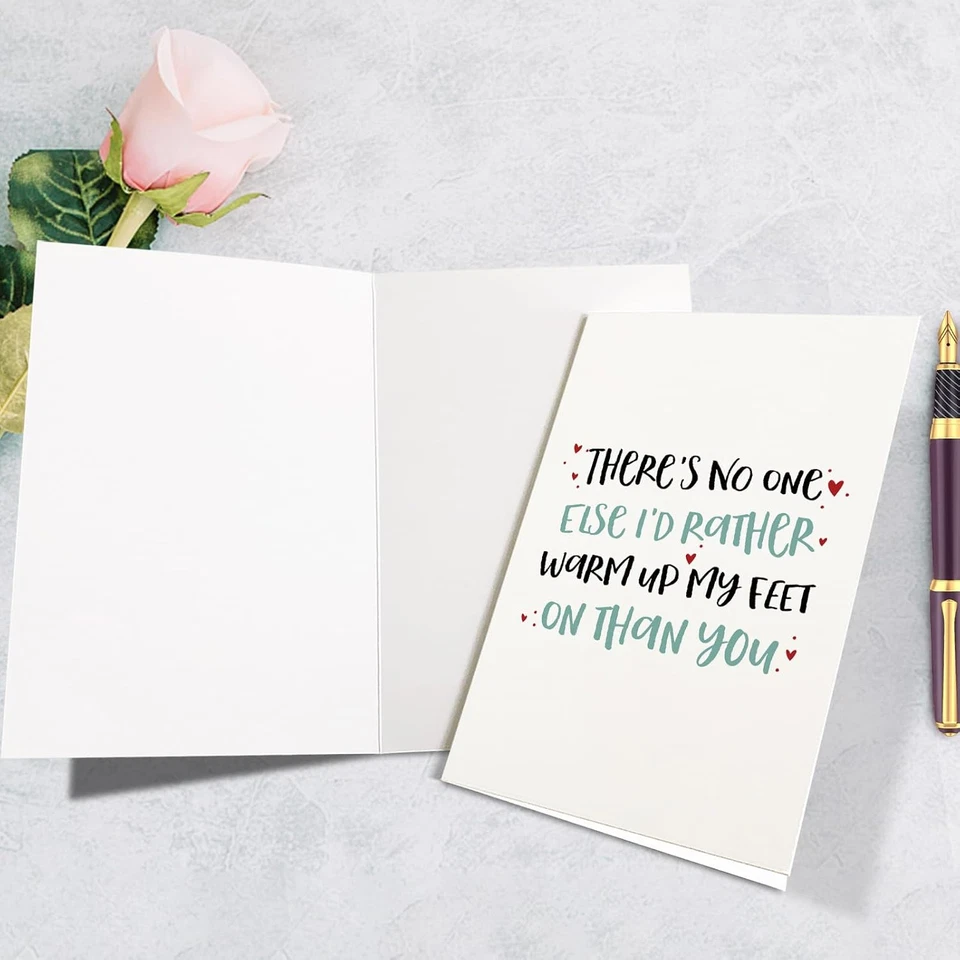 THERE'S NO ONE
ELSE I'D RATHER
WARM UP MY FEET
ON THAN YOU